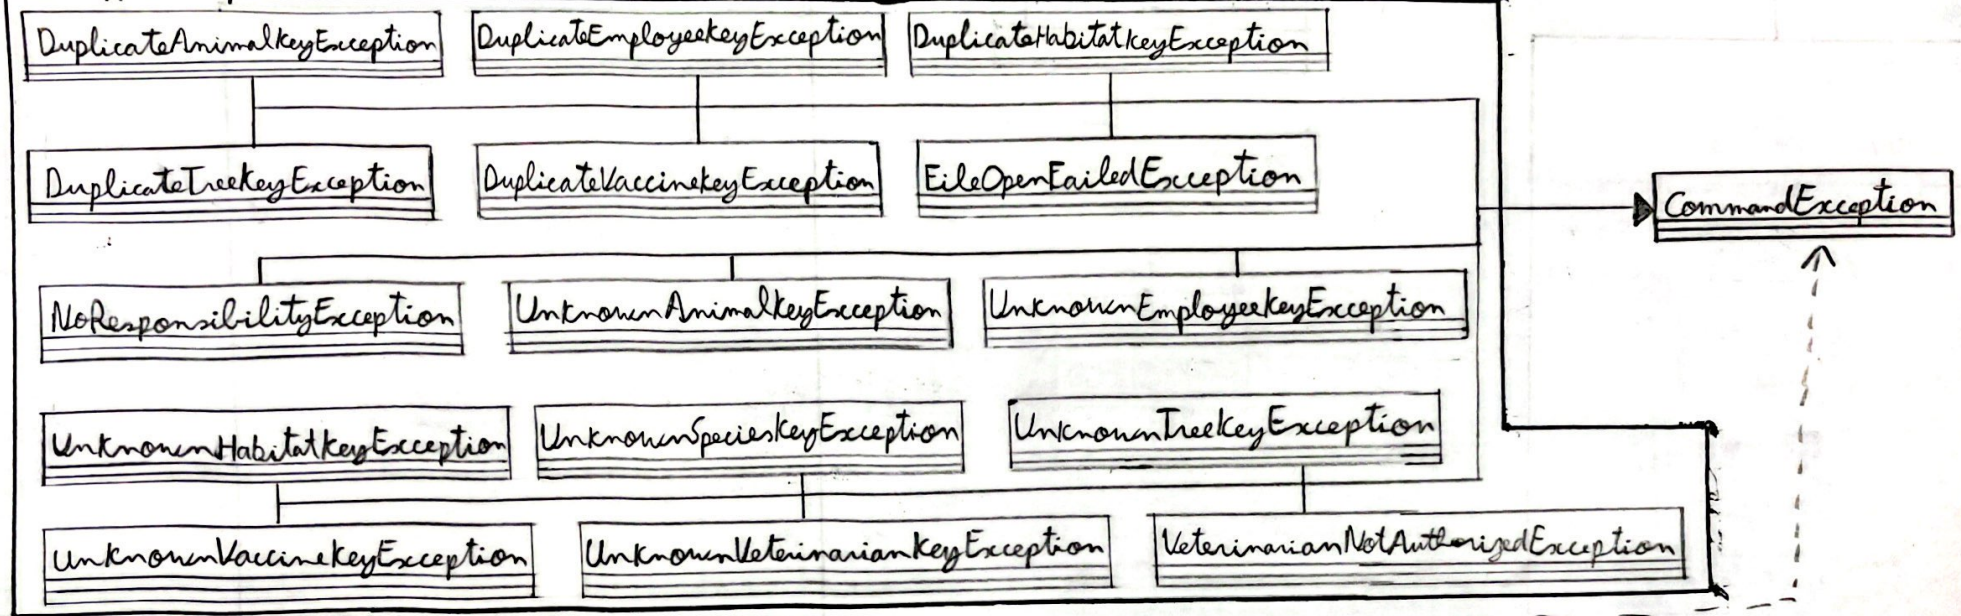 DuplicateAnimalKeyException
DuplicateEmployeeKeyException
DuplicateHabitatKeyException
DuplicateTreeKeyException
DuplicateVaccineKeyException
FileOpenFailedException
CommandException
NoResponsibilityException
UnknownAnimalKeyException
UnknownEmployeeKeyException
UnknownHabitatKeyException
UnknownSpeciesKeyException
UnknownTreeKeyException
UnknownVaccineKeyException
UnknownVeterinarianKeyException
VeterinarianNotAuthorizedException